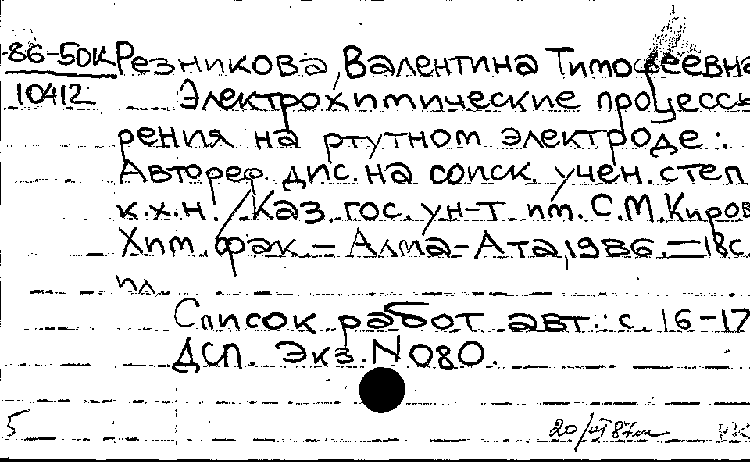 -86-5ДК Резникова, Валентина Тимофеевна
10412 Электрохимические процессы
рения на ртутном электроде:
Автореф. дис. на соиск. учен. степ
к.х.н. / Каз. гос. ун-т им. С.М. Киров
Хим. фак. - Алма-Ата, 1986. - 18с
ил
Список работ авт.: с. 16-17
ДСП. Экз. N 080.
5 20/VI 87